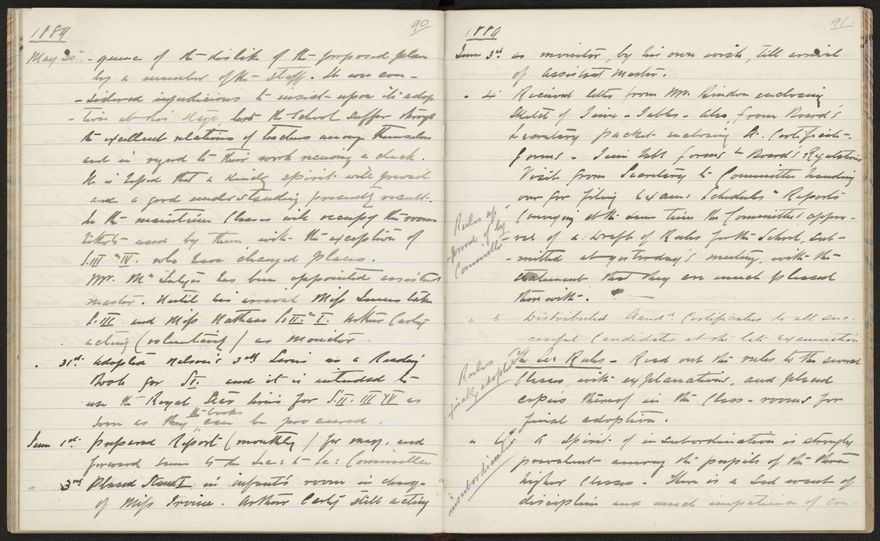 1889
90
May 30 - quence of the dislike of the proposed plan
by a member of the staff. It was con-
- sidered injudicious to insist upon its adop-
- tion at this stage, lest the School suffer through
the excellent relations of teachers among themselves
and in regard to their work receiving a check.
It is hoped that a kindly spirit will prevail
and a good understanding presently result.
In the meantime Classes will occupy the rooms
hitherto used by them, with the exception of
S. III & IV. who have changed places.
Mr. has been appointed assistant
master. Until his arrival Miss takes
S. III and Miss Nathan S. II. & I. Arthur
acting (voluntarily) as Monitor
" 31st. Adopted Nelson's 3rd Series as a Reading
Book for and it is intended to
use the Royal Star Series for S II. III IV as
soon as they the books can be procured.
June 1st. prepared Report (monthly) for May, and
forward same to the Sec: to Committee
" 3rd placed Stand I in infants' room in charge
of Miss Irvine. Arthur still acting
1889
91.
June 3rd as monitor, by his own wish, till arrival
of assistant master.
" 4 Received letter from Mr. enclosing
sketch of Time-Tables. Also, from Board's
Secretary packet enclosing Certificate-
forms - forms & Board's Regulations
Visit from Secretary to Committee handing
over for filing Exam. Schedules & Reports
Conveying at the same time the Committee's appro-
- val of a Draft of Rules for the School, sub-
- mitted at yesterday's meeting, with the
statement that they are much pleased
therewith.
Rules ap-
proved of by
Committee
" 5 Distributed Stand. Certificates to all suc-
cessful Candidates at the late examination
Rules
finally adopted
Rules - Read out the rules to the several
Classes, with explanations, and placed
copies thereof in the Class-rooms for
final adoption.
" A spirit of insubordination is strongly
prevalent among the pupils of the three
higher Classes. There is a sad want of
discipline and much impatience of con-
insubordination